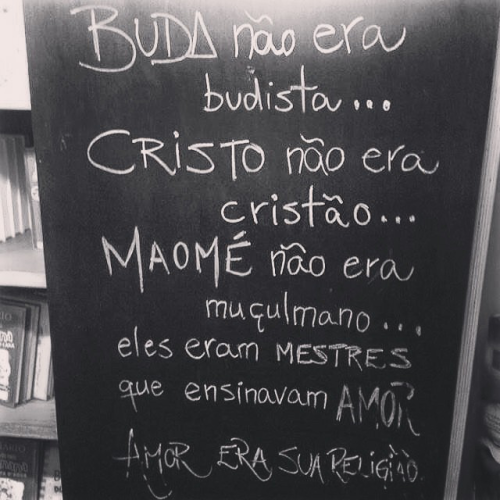 BUDA não era
budista...
CRISTO não era
cristão...
MAOMÉ não era
muçulmano...
eles eram MESTRES
que ensinavam AMOR
AMOR ERA SUA RELIGIÃO.